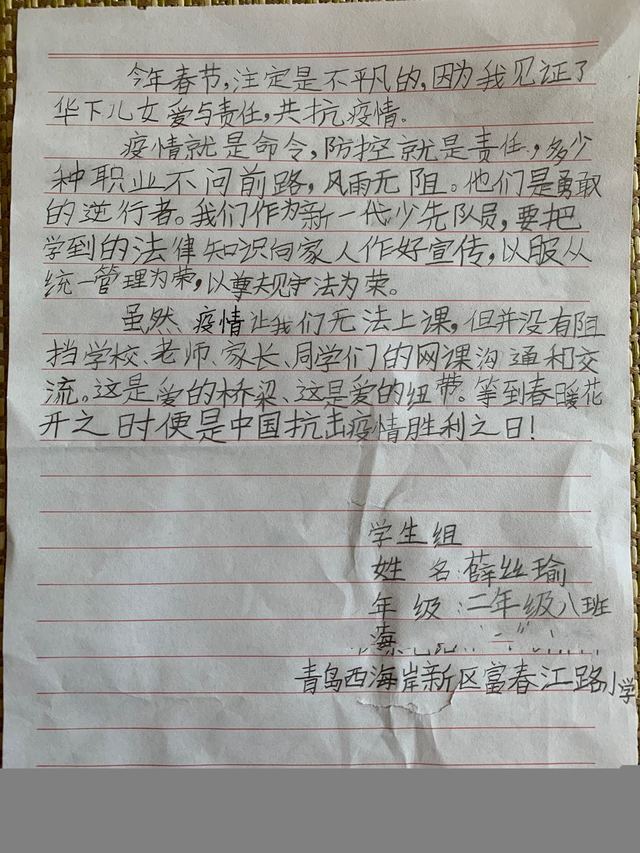 今年春节,注定是不平凡的,因为我见证了
华下儿女爱与责任,共抗疫情。
疫情就是命令,防控就是责任,多少
种职业不问前路,风雨无阻。他们是勇敢
的逆行者。我们作为新一代少先队员,要把
学到的法律知识向家人作好宣传,以服从
统一管理为荣,以尊规守法为荣。
虽然、疫情让我们无法上课,但并没有阻
挡学校、老师、家长、同学们的网课沟通和交
流。这是爱的桥梁、这是爱的纽带。等到春暖花
开之时便是中国抗击疫情胜利之日!
学生组
姓 名:薛丝瑜
年 级:二年级八班
青岛西海岸新区富春江路小学